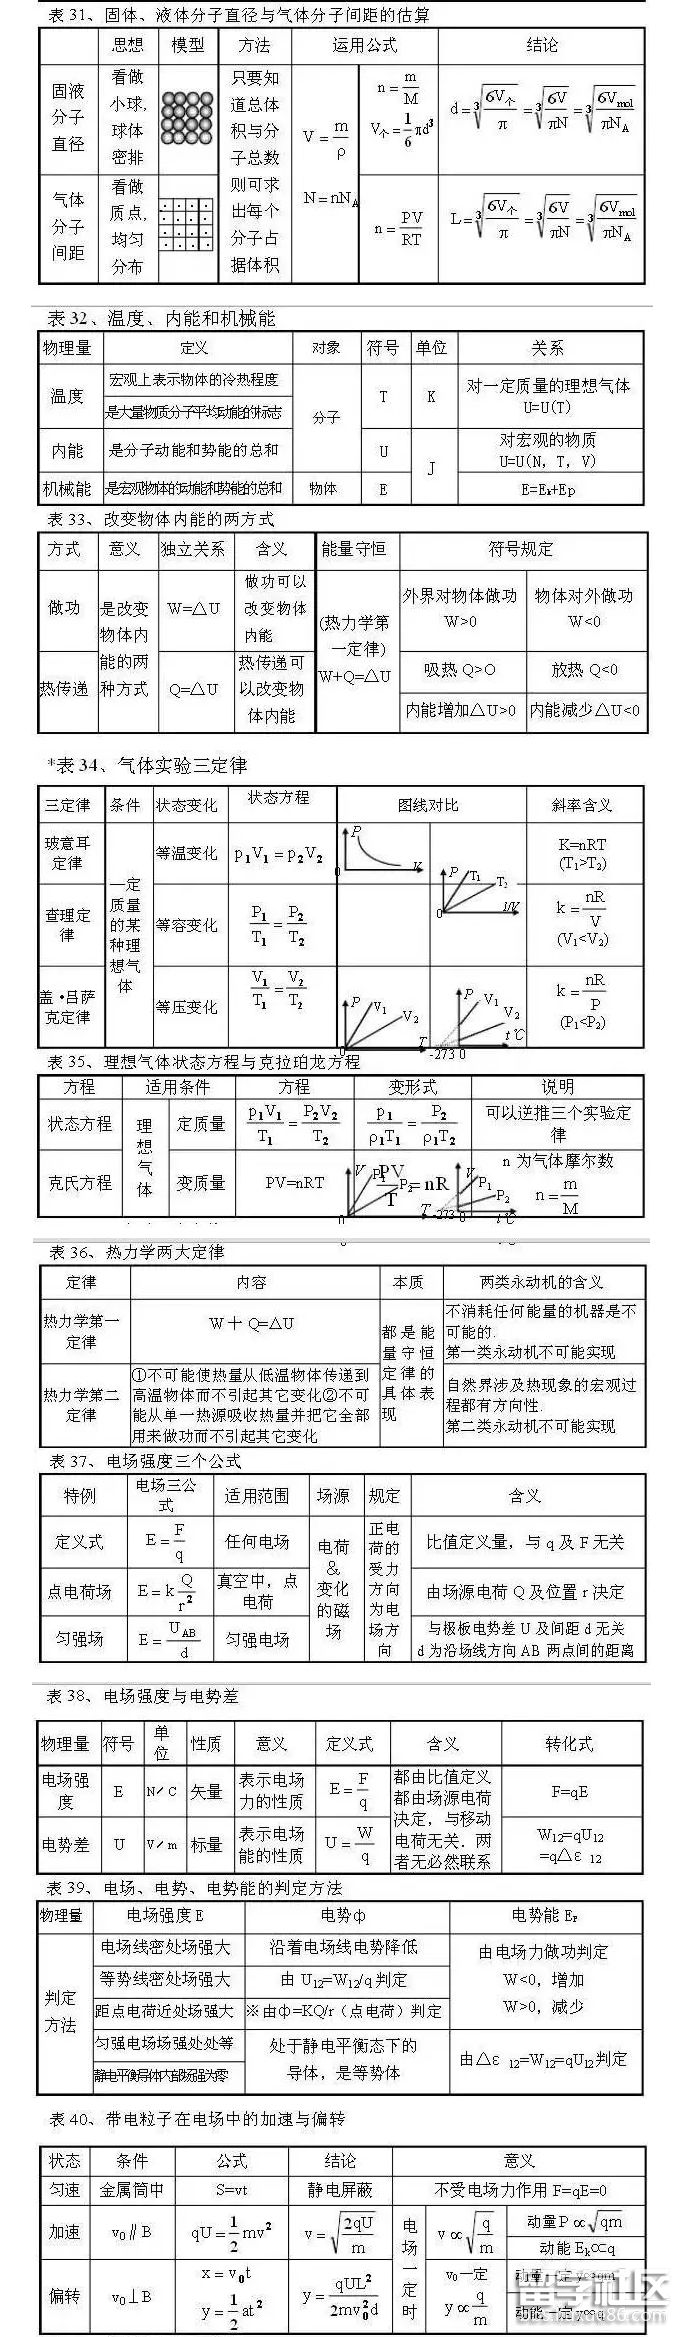 表 31、固体、液体分子直径与气体分子间距的估算
思想 模型 方法 运用公式 结论
固液分子直径 看做小球,球体密排 只要知道总体积与分子总数则可求出每个分子占据体积 V=m/ρ N=nN_A n=m/M V个=1/6πd³ d=³√(6V个/π)=³√(6V/πN)=³√(6Vmol/πN_A)
气体分子间距 看做质点,均匀分布 n=PV/RT L=³√(6V个/π)=³√(6V/πN)=³√(6Vmol/πN_A)
表 32、温度、内能和机械能
物理量 定义 对象 符号 单位 关系
温度 宏观上表示物体的冷热程度 分子 T K 对一定质量的理想气体 U=U(T)
是大量物质分子平均动能的标志
内能 是分子动能和势能的总和 U J 对宏观的物质 U=U(N, T, V)
机械能 是宏观物体的动能和势能的总和 物体 E E=Ek+Ep
表 33、改变物体内能的两方式
方式 意义 独立关系 含义 能量守恒 符号规定
做功 是改变物体内能的两种方式 W=△U 做功可以改变物体内能 (热力学第一定律) W+Q=△U 外界对物体做功 W>0 物体对外做功 W<0
热传递 Q=△U 热传递可以改变物体内能 吸热 Q>O 放热 Q<0
内能增加△U>0 内能减少△U<0
*表 34、气体实验三定律
三定律 条件 状态变化 状态方程 图线对比 斜率含义
玻意耳定律 一定质量的某种理想气体 等温变化 p₁V₁=p₂V₂ P V 0 P T₁ T₂ 0 1/V K=nRT (T₁>T₂)
查理定律 等容变化 P₁/T₁=P₂/T₂ k=nR/V (V₁<V₂)
盖·吕萨克定律 等压变化 V₁/T₁=V₂/T₂ P V₁ V₂ T 0 P V₁ V₂ t℃ -273 0 k=nR/P (P₁<P₂)
表 35、理想气体状态方程与克拉珀龙方程
方程 适用条件 方程 变形式 说明
状态方程 理想气体 定质量 p₁V₁/T₁=P₂V₂/T₂ p₁/ρ₁T₁=P₂/ρ₁T₂ 可以逆推三个实验定律
克氏方程 变质量 PV=nRT PV/T=nR n 为气体摩尔数 n=m/M
V P₁ P₂ T 0 V P₁ P₂ -273 0 t℃
表 36、热力学两大定律
定律 内容 本质 两类永动机的含义
热力学第一定律 W＋Q=△U 都是能量守恒定律的具体表现 不消耗任何能量的机器是不可能的.
第一类永动机不可能实现
热力学第二定律 ①不可能使热量从低温物体传递到高温物体而不引起其它变化②不可能从单一热源吸收热量并把它全部用来做功而不引起其它变化 自然界涉及热现象的宏观过程都有方向性.
第二类永动机不可能实现
表 37、电场强度三个公式
特例 电场三公式 适用范围 场源 规定 含义
定义式 E=F/q 任何电场 电荷&变化的磁场 正电荷的受力方向为电场方向 比值定义量，与 q 及 F 无关
点电荷场 E=kQ/r² 真空中，点电荷 由场源电荷 Q 及位置 r 决定
匀强场 E=U_AB/d 匀强电场 与极板电势差 U 及间距 d 无关
d 为沿场线方向 AB 两点间的距离
表 38、电场强度与电势差
物理量 符号 单位 性质 意义 定义式 含义 转化式
电场强度 E N/C 矢量 表示电场力的性质 E=F/q 都由比值定义都由场源电荷决定，与移动电荷无关．两者无必然联系 F=qE
电势差 U V/m 标量 表示电场能的性质 U=W/q W₁₂=qU₁₂ =q△ε₁₂
表 39、电场、电势、电势能的判定方法
物理量 电场强度 E 电势φ 电势能 EP
判定方法 电场线密处场强大 沿着电场线电势降低 由电场力做功判定
W<0，增加
W>0，减少
等势线密处场强大 由 U₁₂=W₁₂/q 判定
距点电荷近处场强大 ※由φ=KQ/r（点电荷）判定
匀强电场场强处处等 处于静电平衡态下的导体，是等势体 由△ε₁₂=W₁₂=qU₁₂判定
静电平衡导体内部场强为零
表 40、带电粒子在电场中的加速与偏转
状态 条件 公式 结论 意义
匀速 金属筒中 S=vt 静电屏蔽 不受电场力作用 F=qE=0
加速 v₀∥B qU=1/2mv² v=√(2qU/m) 电场一定时 v∝√(q/m) 动量 P∝√qm
动能 Ek∝q
偏转 v₀⊥B x=v₀t y=1/2at² y=qUL²/2mv₀²d v₀一定 y∝q/m 动量一定 y∝qm
动能一定 y∝q
留学社区